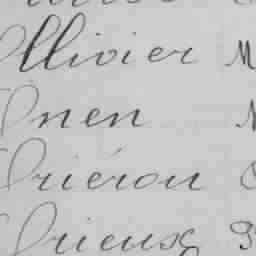 Ollivier M
Onen
Oriéron
Orieux